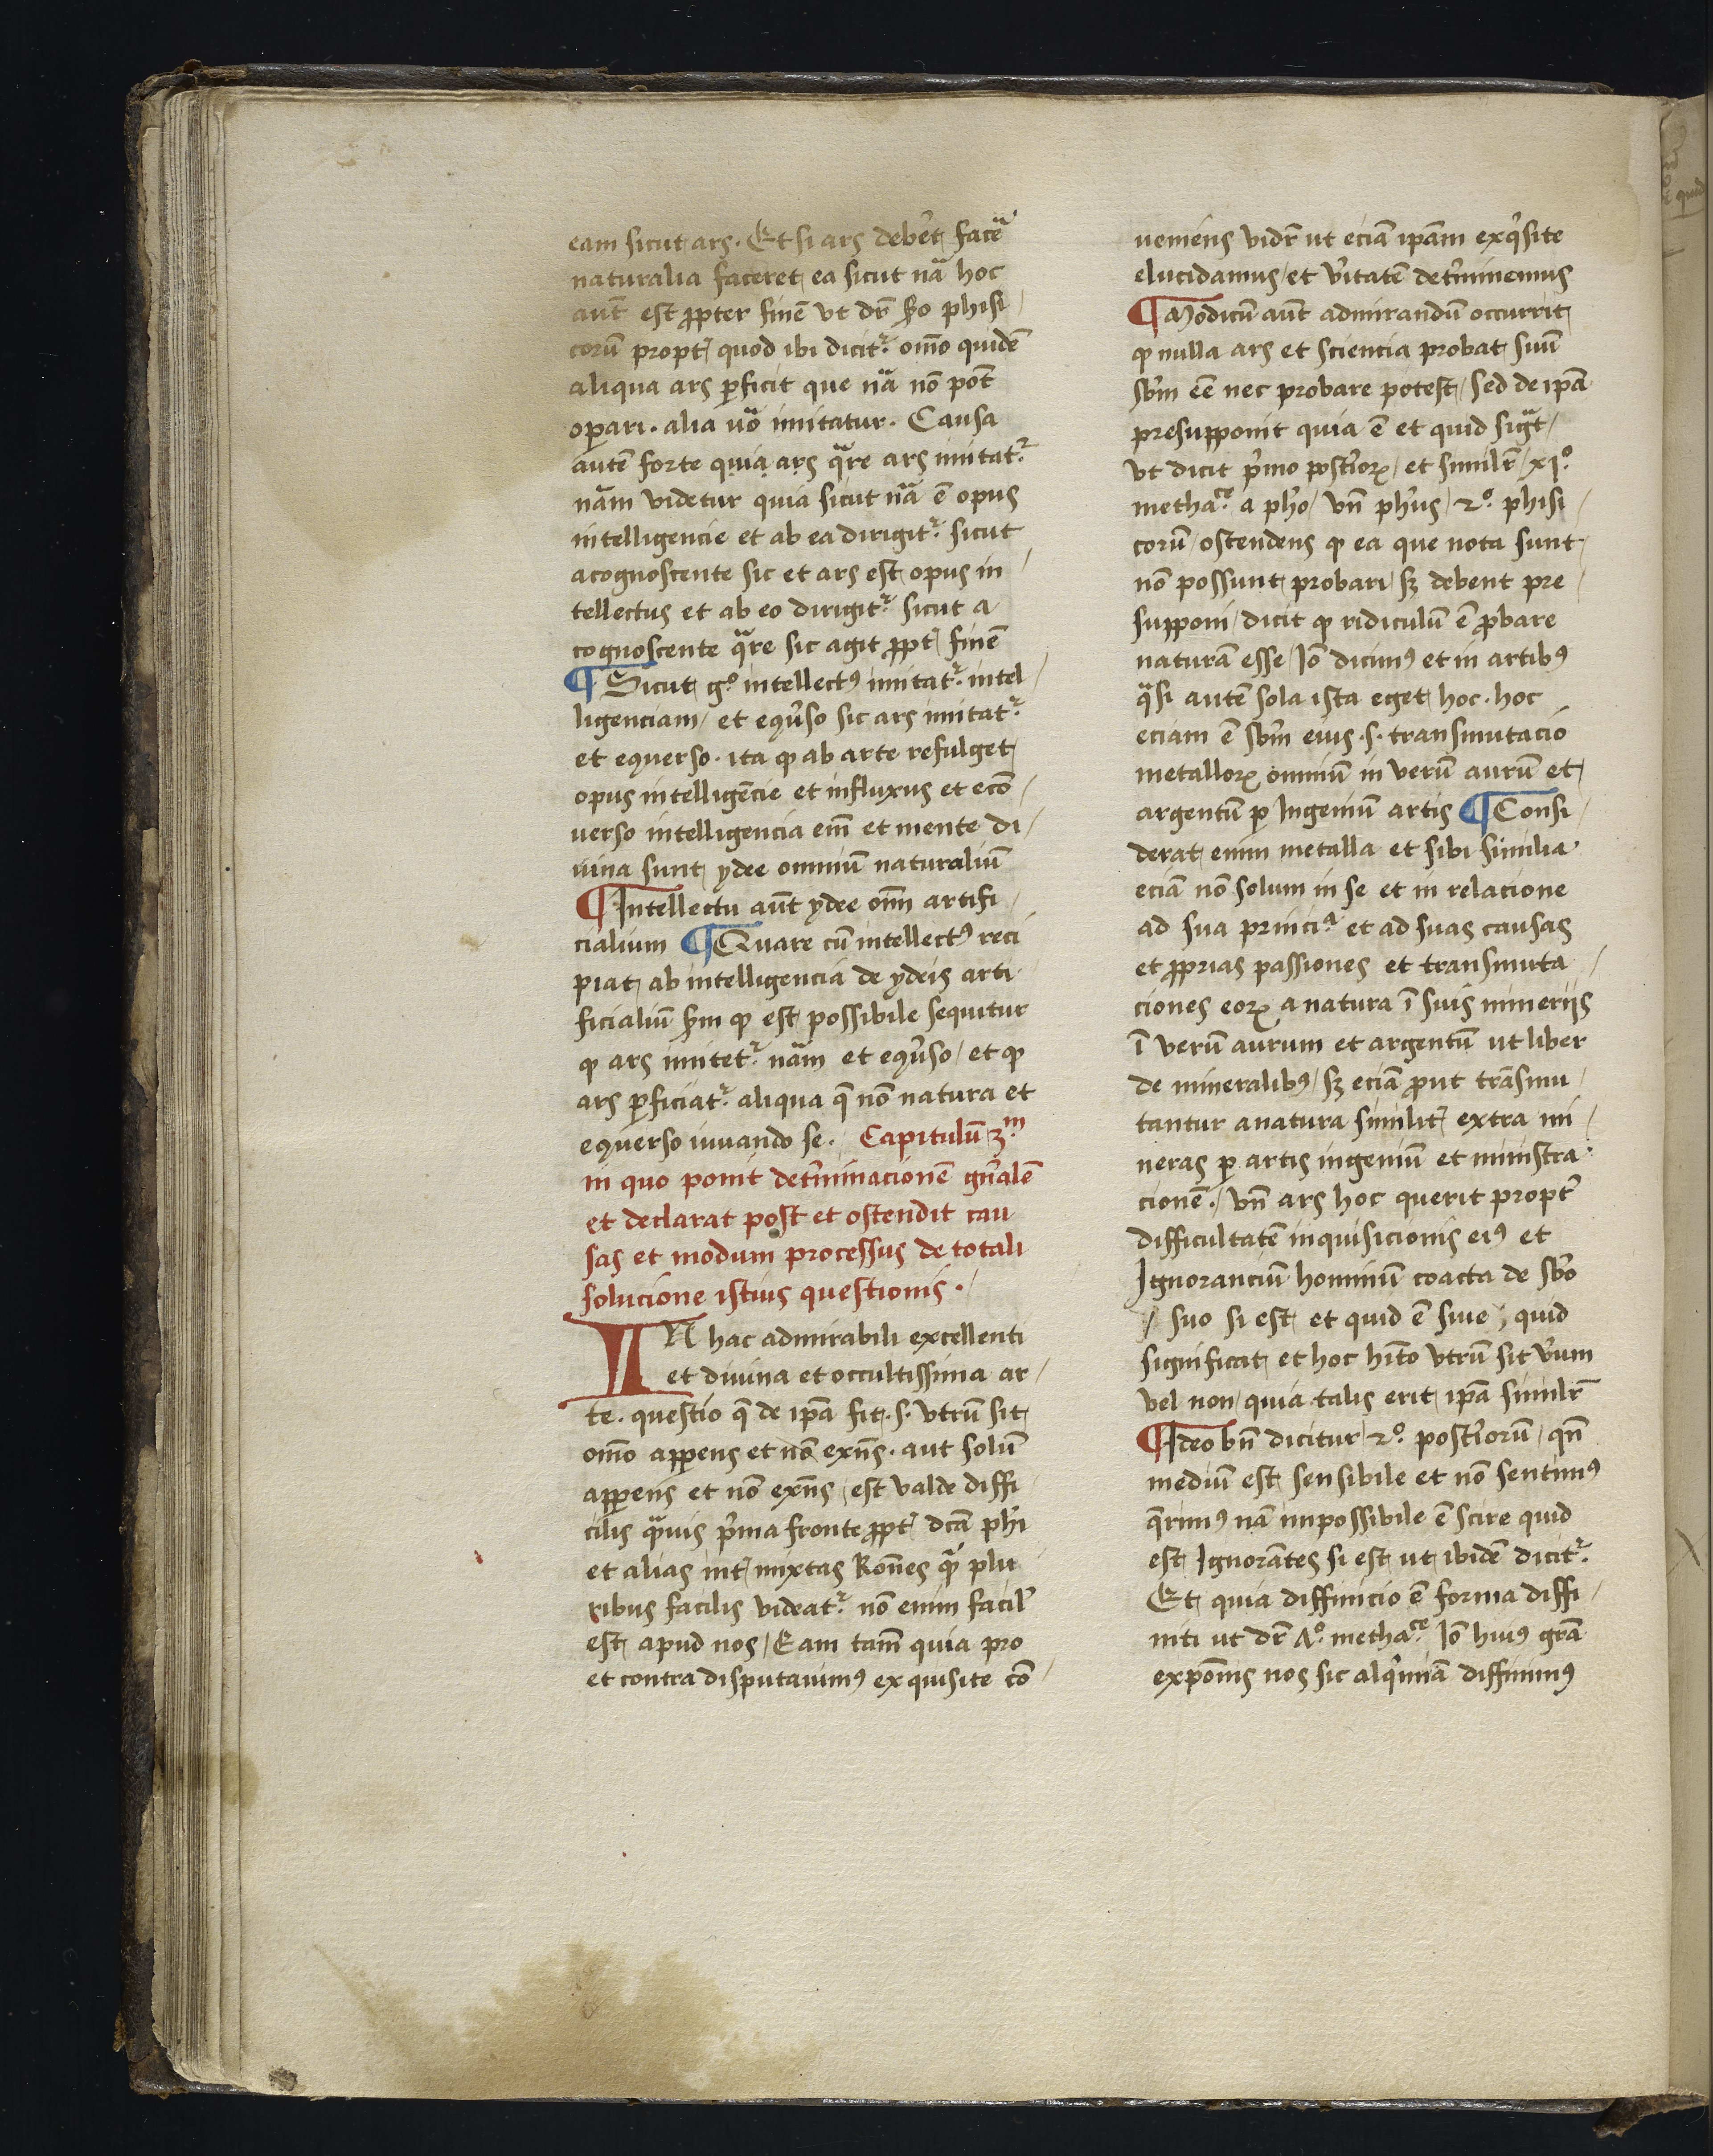 eam sicut ars. Et si ars deberet facẽ
naturalia faceret ea sicut nã hoc
aut̃ est ꝓpter finẽ vt dr̃ ẜo phisi/
corũ propt̃ quod ibi dicit᷑ om̃o quidẽ
aliqua ars ꝑficit que nã nõ põt
oꝑari. alia uõ imitatur. Causa
autẽ forte quia ars qᷓre ars imitat᷑
nãm videtur quia sicut nã ẽ opus
intelligencie et ab ea dirigit᷑ sicut
acognoscente sic et ars est opus in/
tellectus et ab eo dirigit᷑ sicut a
cognoscente qᷓre sic agit ꝓpt̃ finẽ
¶ Sicut gº intellectꝰ imitat᷑ intel/
ligenciam/ et eqũso sic ars imitat᷑
et equerso. ita ꝙ ab arte refulget
opus intelligẽcie et influxus et ecõ/
uerso intelligencia eñi et mente di/
uina sunt ydee omniũ naturaliũ
¶ Intellectu aut̃ ydee om̃ artifi/
cialium ¶ Quare cũ intellectꝰ reci
piat ab intelligencia de ydeis arti
ficialiũ ẜm ꝙ est possibile sequitur
ꝙ ars imitet᷑ nãm et eqũso/ et ꝙ
ars ꝑficiat᷑ aliqua q̃ nõ natura et
equerso iuuando se. Capitulũ 3ᵐ
in quo ponit det̃minacionẽ gñalẽ
et declarat post et ostendit cau
sas et modum processus de totali
solucione istius questionis./
IN hac admirabili excellenti
et diuina et occultissima ar/
te. questio q̃ de ipã fit .s. vtrũ sit
om̃o apꝑens et nõ exñs. aut solũ
apꝑens et nõ exñs/ est valde diffi
cilis qᷓuis pⁱma fronte ꝓpt̃ dcã phi
et alias int̃mixtas Rõnes qᷓ plu
ribus facilis videat᷑ nõ enim facil̃
est apud nos/ Eam tam̃ quia pro
et contra disputauimꝰ exquisite cõ/
ueniens vidr̃ ut eciã ipãm exqⁱsite
elucidamus/ et ṽitatẽ det̃minemus
¶ Modicũ aut̃ admirandũ occurrit
ꝙ nulla ars et sciencia probat suũ
sb̃m eẽ nec probare potest/ sed de ipã
presupponit quia ẽ et quid sigᷓt/
vt dicit pⁱmo post̃ioꝝ/ et similr̃/ xiº.
methaᶜᵉ. a pho/ vñ phũs/ 2º. phisi/
corũ/ ostendens ꝙ ea que nota sunt
nõ possunt probari/ sꝫ debent pre/
supponi/ dicit ꝙ ridiculũ ẽ ꝓbare
naturã esse/ Iõ dicimꝰ et in artibꝰ
qᷓsi autẽ sola ista eget hoc. hoc
eciam ẽ sb̃m eius .s. transmutacio
metalloꝝ omniũ in verũ aurũ et
argentũ ꝑ Ingeniũ artis ¶ Consi/
derat enim metalla et sibi similia
eciã nõ solum in se et in relacione
ad sua princiᵃ et ad suas causas
et ꝓprias passiones et transmuta/
ciones eoꝝ a natura ĩ suis mineriis
ĩ verũ aurum et argentũ ut liber
de mineralibꝰ/ sꝫ eciã ꝓut trãsmu/
tantur anatura similit̃ extra mi/
neras ꝑ artis ingeniũ et ministra
cionẽ./ vñ ars hoc querit propt̃
difficultatẽ inquisicionis eiꝰ et
Ignoranciũ hominũ coacta de sb̃o
/ suo si est et quid ẽ siue/ quid
significat et hoc hĩto vtrũ sit ṽum
vel non/ quia talis erit ipã similr̃
¶ Ideo bñ dicitur 2º. post̃iorũ/ qñ
mediũ est sensibile et nõ sentimꝰ
q̃rimꝰ nã impossibile ẽ scire quid
est Ignorãtes si est ut ibidẽ dicit᷑
Et quia diffinicio ẽ forma diffi/
niti ut dr̃ Λº. methaᶜᵉ. Iõ huiꝰ grã
expõnis nos sic alqⁱmiã diffinimꝰ